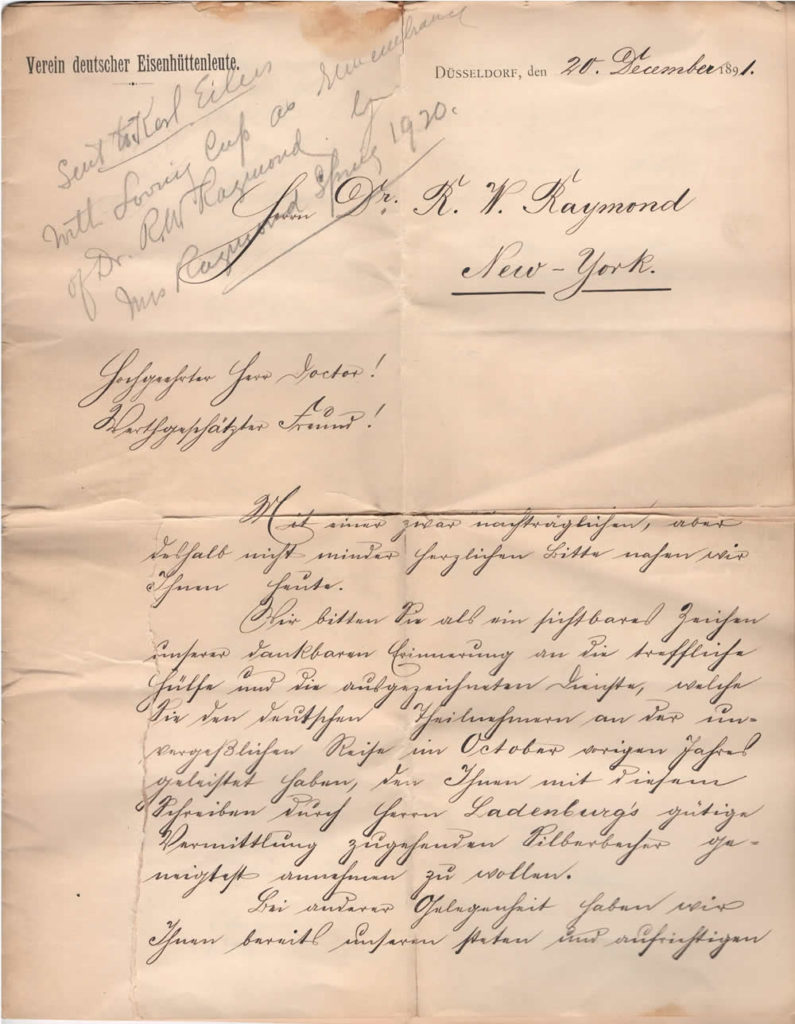 Verein deutscher Eisenhüttenleute.
DÜSSELDORF, den 20. December 1891.
Sent to Karl Eilers
with Loving Cup as remembrance
of Dr. R.W. Raymond by
Mrs Raymond Spring 1920.
Herrn Dr. R. W. Raymond
New-York.
Hochgeehrter Herr Doctor!
Werthgeschätzter Freund!
Mit einer zwar nachträglichen, aber
deshalb nicht minder herzlichen Bitte nahen wir
Ihnen heute.
Wir bitten Sie als ein sichtbares Zeichen
unserer dankbaren Erinnerung an die treffliche
Hülfe und die ausgezeichneten Dienste, welche
Sie den deutschen Theilnehmern an der un-
vergeßlichen Reise im October vorigen Jahres
geleistet haben, den Ihnen mit diesem
Schreiben durch Herrn Ladenburg's gütige
Vermittlung zugehenden Silberbecher ge-
neigtest annehmen zu wollen.
Bei anderer Gelegenheit haben wir
Ihnen bereits unseren steten und aufrichtigen